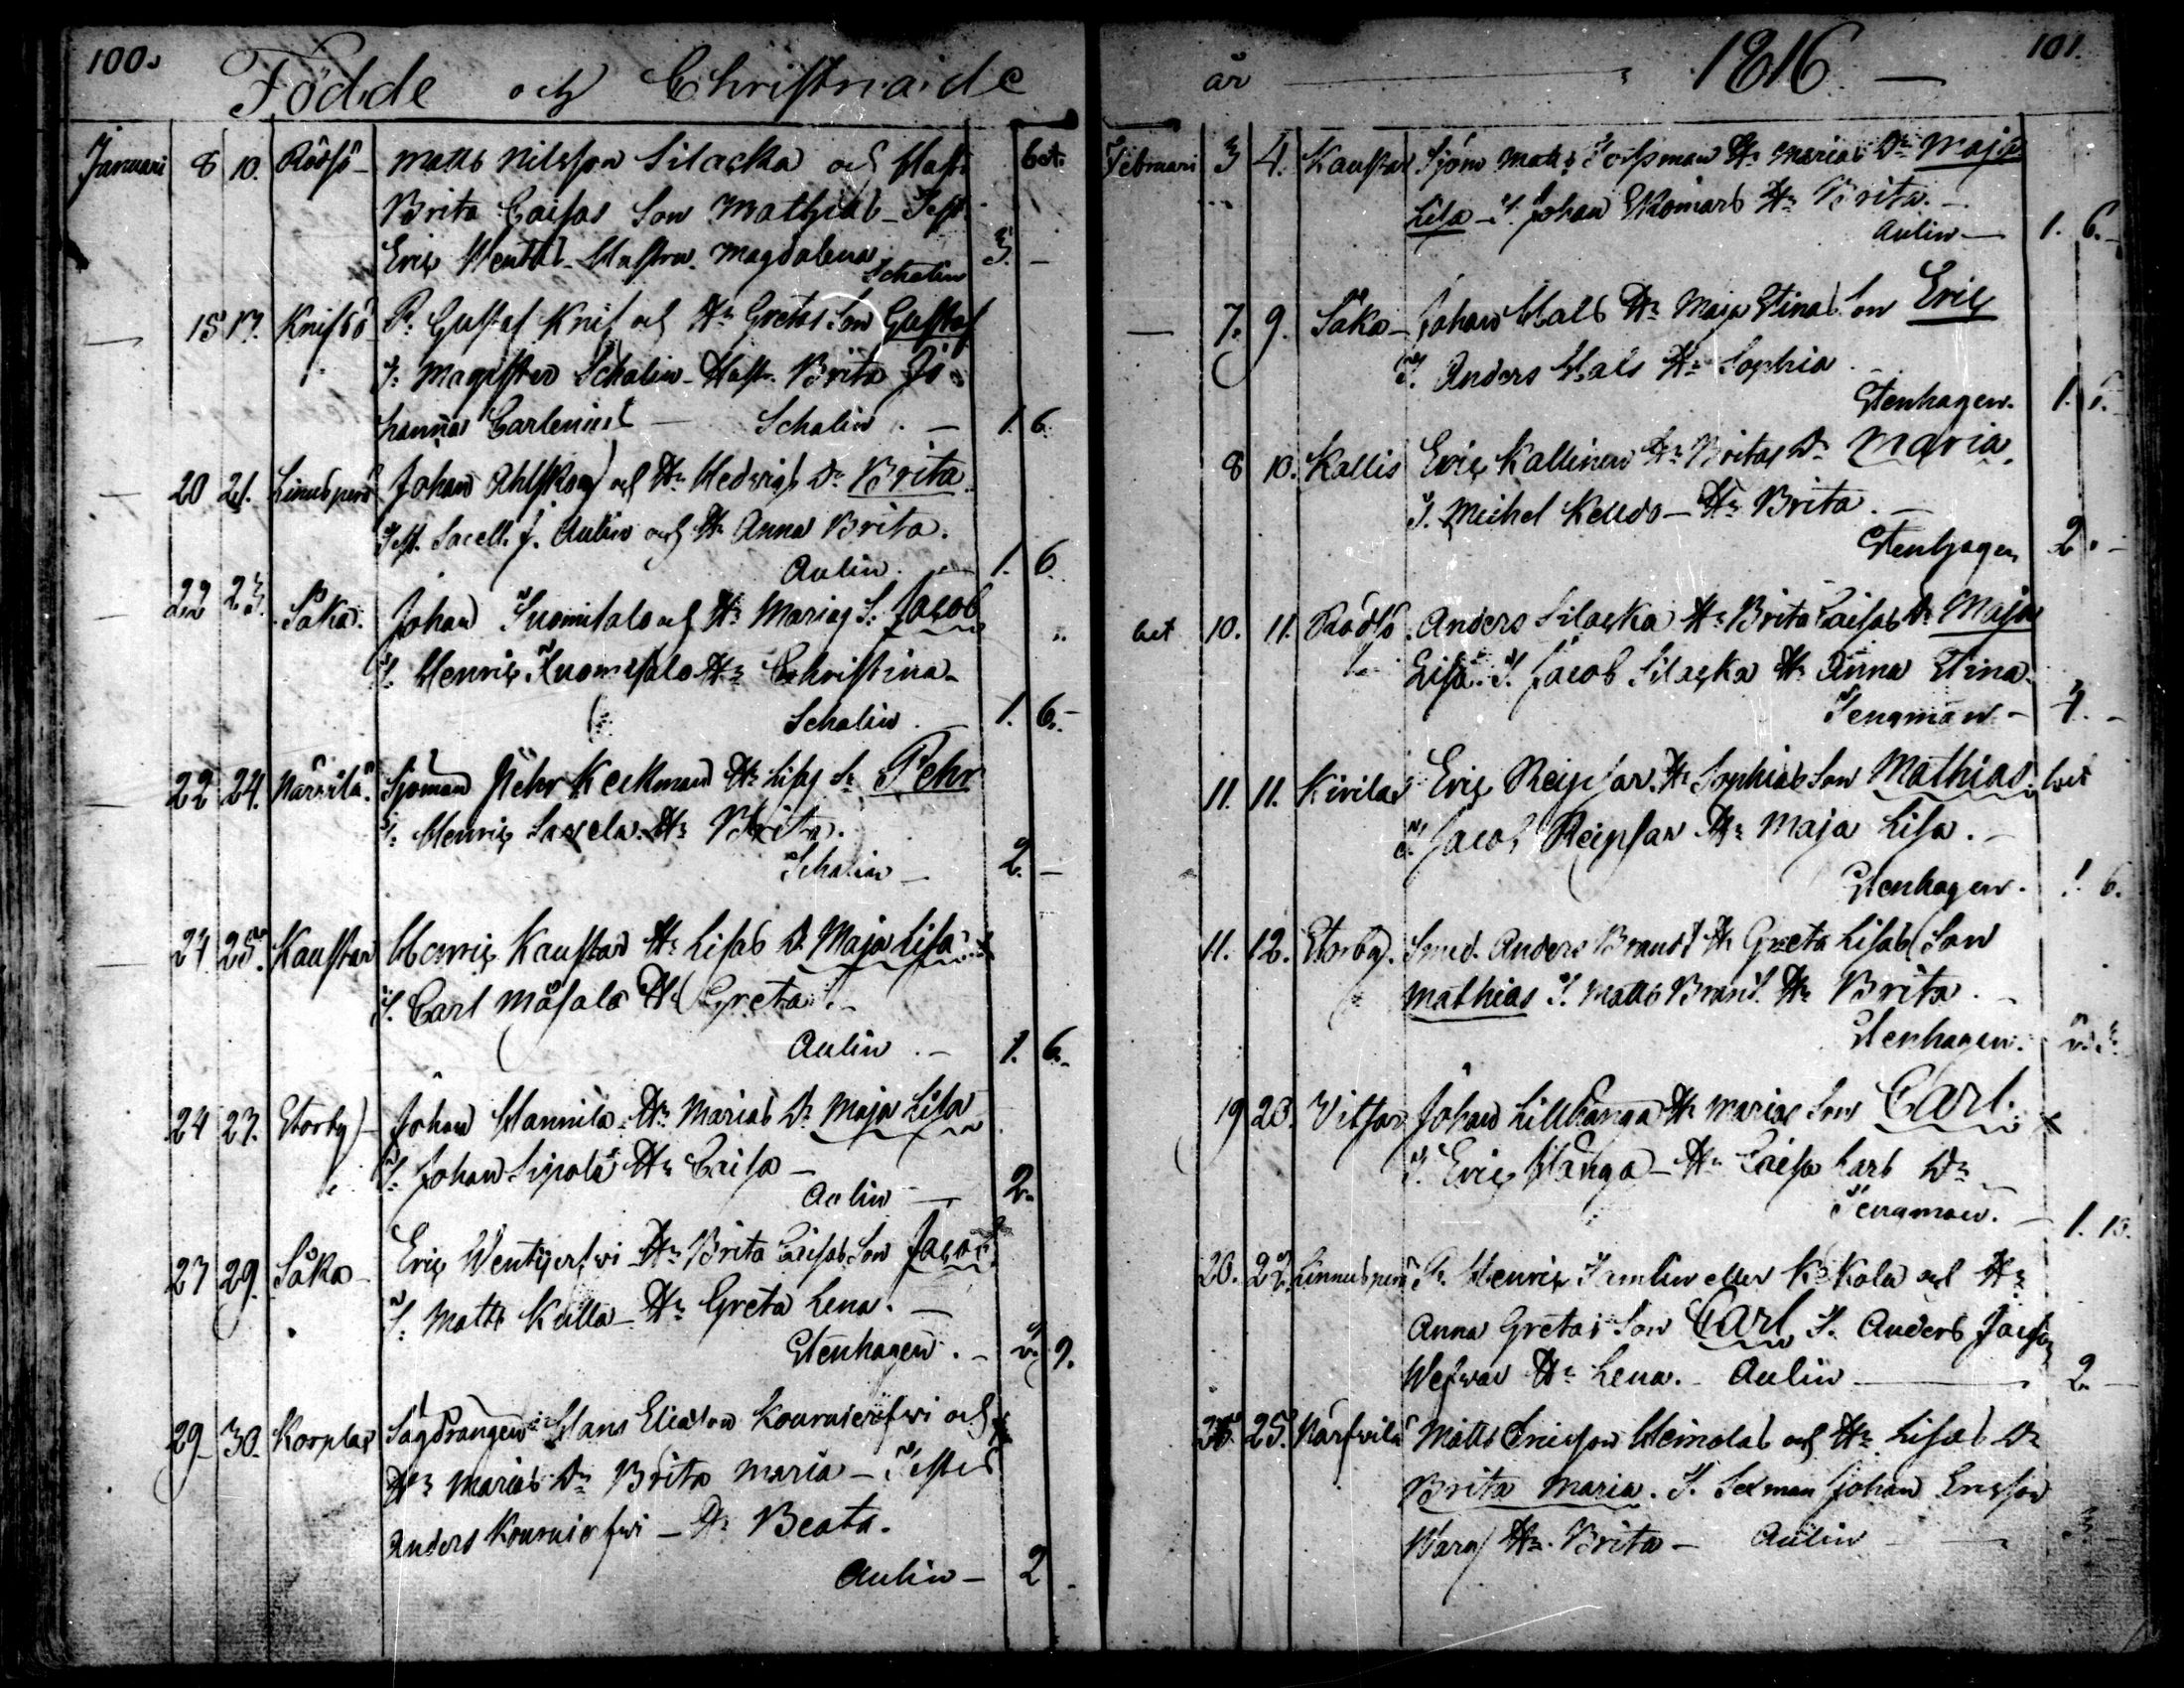 100.
Födde och Christnade
Januari 8 10. Rödsö - Matts Nilsson Silacka och Hustr. bet.
Brita Caisas Son Mathias - Test.
Eric Wentus - Hustru Magdalena 3. -
Schalin
15 17. Knifsö R. Gustaf Knif och H. Gretas Son Gustaf
T. Magister Schalin - Hustr. Brita Jo
hannas Carlenius - Schalin. - 1. 6.
20 21. Linnusperä Johan Ahlskog och H. Hedvigs Dr Brita
Test. Sacell. J. Aulin och H. Anna Brita.
Aulin. 1. 6.
22 23. Såka. Johan Tuomisalo och H. Marias S. Jacob
T. Henric Tuomisalo H. Christina -
Schalin. - 1. 6. -
22 24. Närvilä. Sjöman Pehr Keckman H. Lisas S. Pehr
T. Henric Saxela H. Brita.
Schalin - 2. -
24 25. Kaustar Henric Kaustar H. Lisas D. Maja Lisa
T. Carl Måsala H. Greta. -
Aulin. - 1. 6. -
24 27. Storby - Johan Hannila H. Marias D. Maja Lisa
T. Johan Sipola H. Caisa -
Aulin - 2.
27 29. Såka - Eric Wentjerfwi H. Brita Caisas Son Jacob
T. Matts Kulla - H. Greta Lena. -
Stenhagen. -
29 30. Korplax Sågdrängen Hans Eliasson Kournierfwi och
H. Marias Dr Brita Maria - Testes
Anders Kournierfwi - H. Beata.
Aulin - 2
år 1816 - 101.
Februari 3 4. Kaustar Sjöm. Matts Torpman H. Marias Dr Maja
Lisa - T. Johan Skomars H. Brita. -
Aulin - 1. 6. -
7. 9. Såka - Johan Hals H. Maja Stinas Son Eric
T. Anders Hals H. Sophia.
Stenhagen. 1.
8 10. Kallis Eric Kallinen H. Britas Dr Maria.
T. Michel Kelldo - H. Brita. -
Stenhagen 2. -
bet 10. 11. Rödsö Anders Silacka H. Brita Caisas Dr Maja
Lisa. T. Jacob Silacka H. Anna Stina.
Tengman -
11. 11. Kirilax Eric Reipsar H. Sophias Son Mathias. bet
T. Jacob Reipsar H. Maja Lisa. -
Stenhagen. 1. 6.
11. 12. Storby. Smed. Anders Brandt H. Greta Lisas Son
Mathias T. Matts Brandt. H. Brita. -
Stenhagen.
19 20. Vitsar Johan Lillhånga H. Marias Son Carl.
T. Eric Hånga - H. Caisa Lars Dr
Tengman. - 1.
20. 22. Linnusperä R. Henric Tamlin eller Kåkola och H.
Anna Gretas Son Carl T. Anders Jacobs
H. Lena. - Aulin - 2. -
25. Närfvilä Matts Ericsson Heinolas och H. Lisas Dr
Brita Maria. T. Sexman Johan Ersson
Warg H. Brita - Aulin -